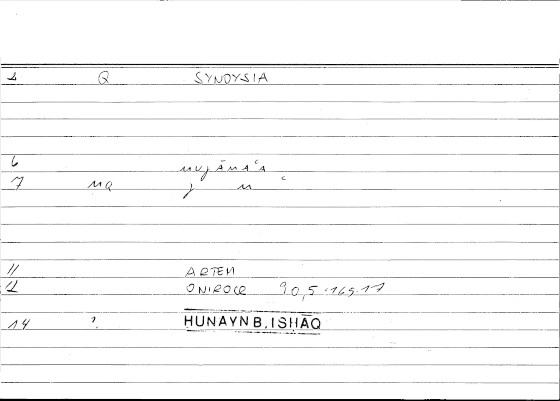 1 Q SYNOYSIA
6 muǧāmaʿa
7 MQ ǧ m ʿ
11 ARTEM
12 ONIROCR 90,5 · 165.17
14 ? HUNAYN B. ISHĀQ